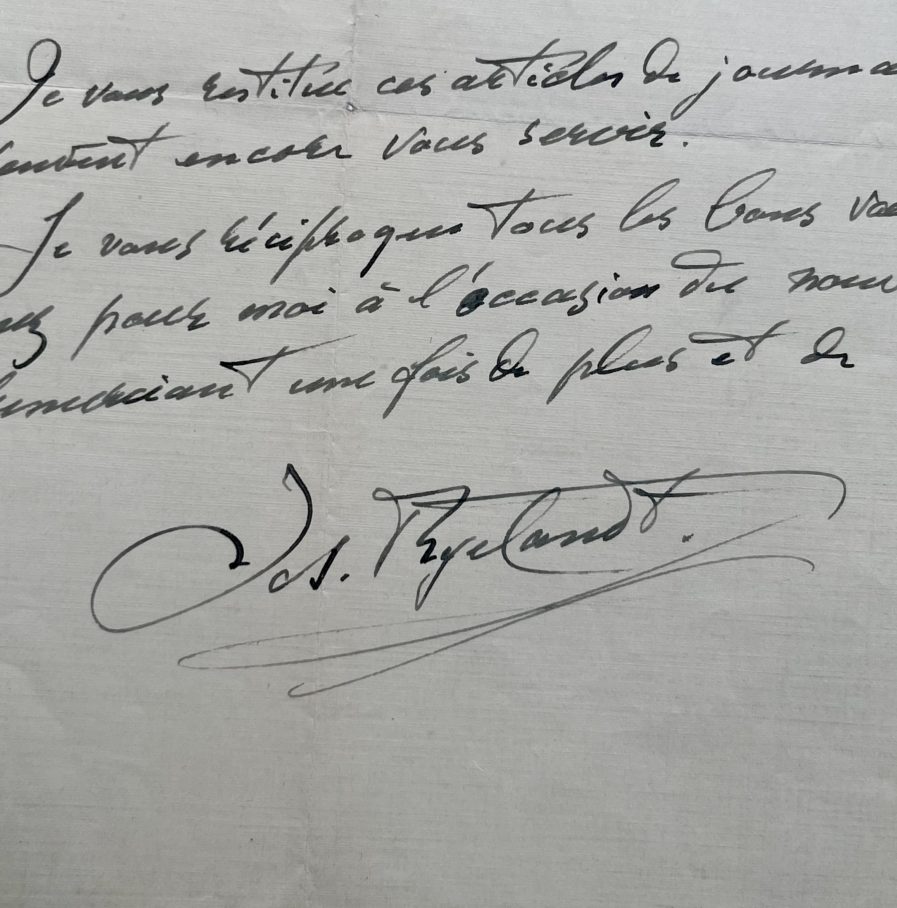 Je vous restitue ces articles de journa
encore vous servir.
Je vous réciproque tous les bons
pour moi à l'occasion du nouv
une fois de plus et de
Jos. Ryelandt.